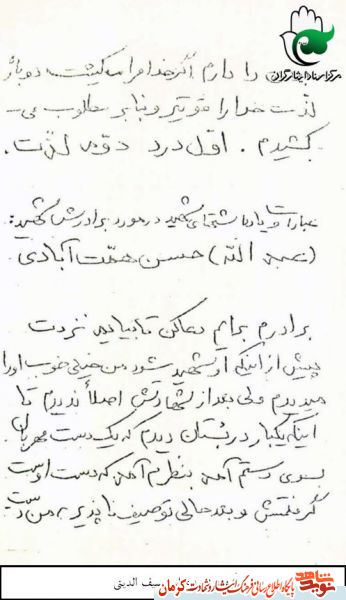 مرکز اسناد ایثارگران
را دارم اگر خدا مرا میکشت دوباره
لذت خدا را قوی‌تر و بنابر مطلوب می-
کشیدم. اول درد دوم لذت.
عبارات و یادداشتهای شهید در مورد برادرش شهید:
(عبد الله) حسن همت آبادی
برادرم برایم دعا کن تا بیایم نزدت
پیش از اینکه او شهید شود من خیلی خوب او را
میدیدم ولی بعد از شهادتش اصلاً ندیدم تا
اینکه یکبار در بستان دیدم که یک دست مهربان
بسوی دستم آمد بنظرم آمد که دست اوست
گرفتمش و بعد حالی توصیف ناپذیر به من دست
نوید شاهد
پایگاه اطلاع رسانی فرهنگ ایثار و شهادت کرمان
سیف الدینی